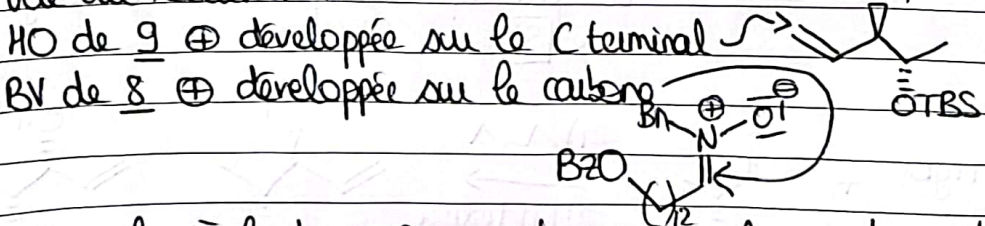 HO de 9 ⊕ développée sur le C terminal
BV de 8 ⊕ développée sur le carbone
OTBS
Bn ⊕ N O ⊖
BzO
( )12